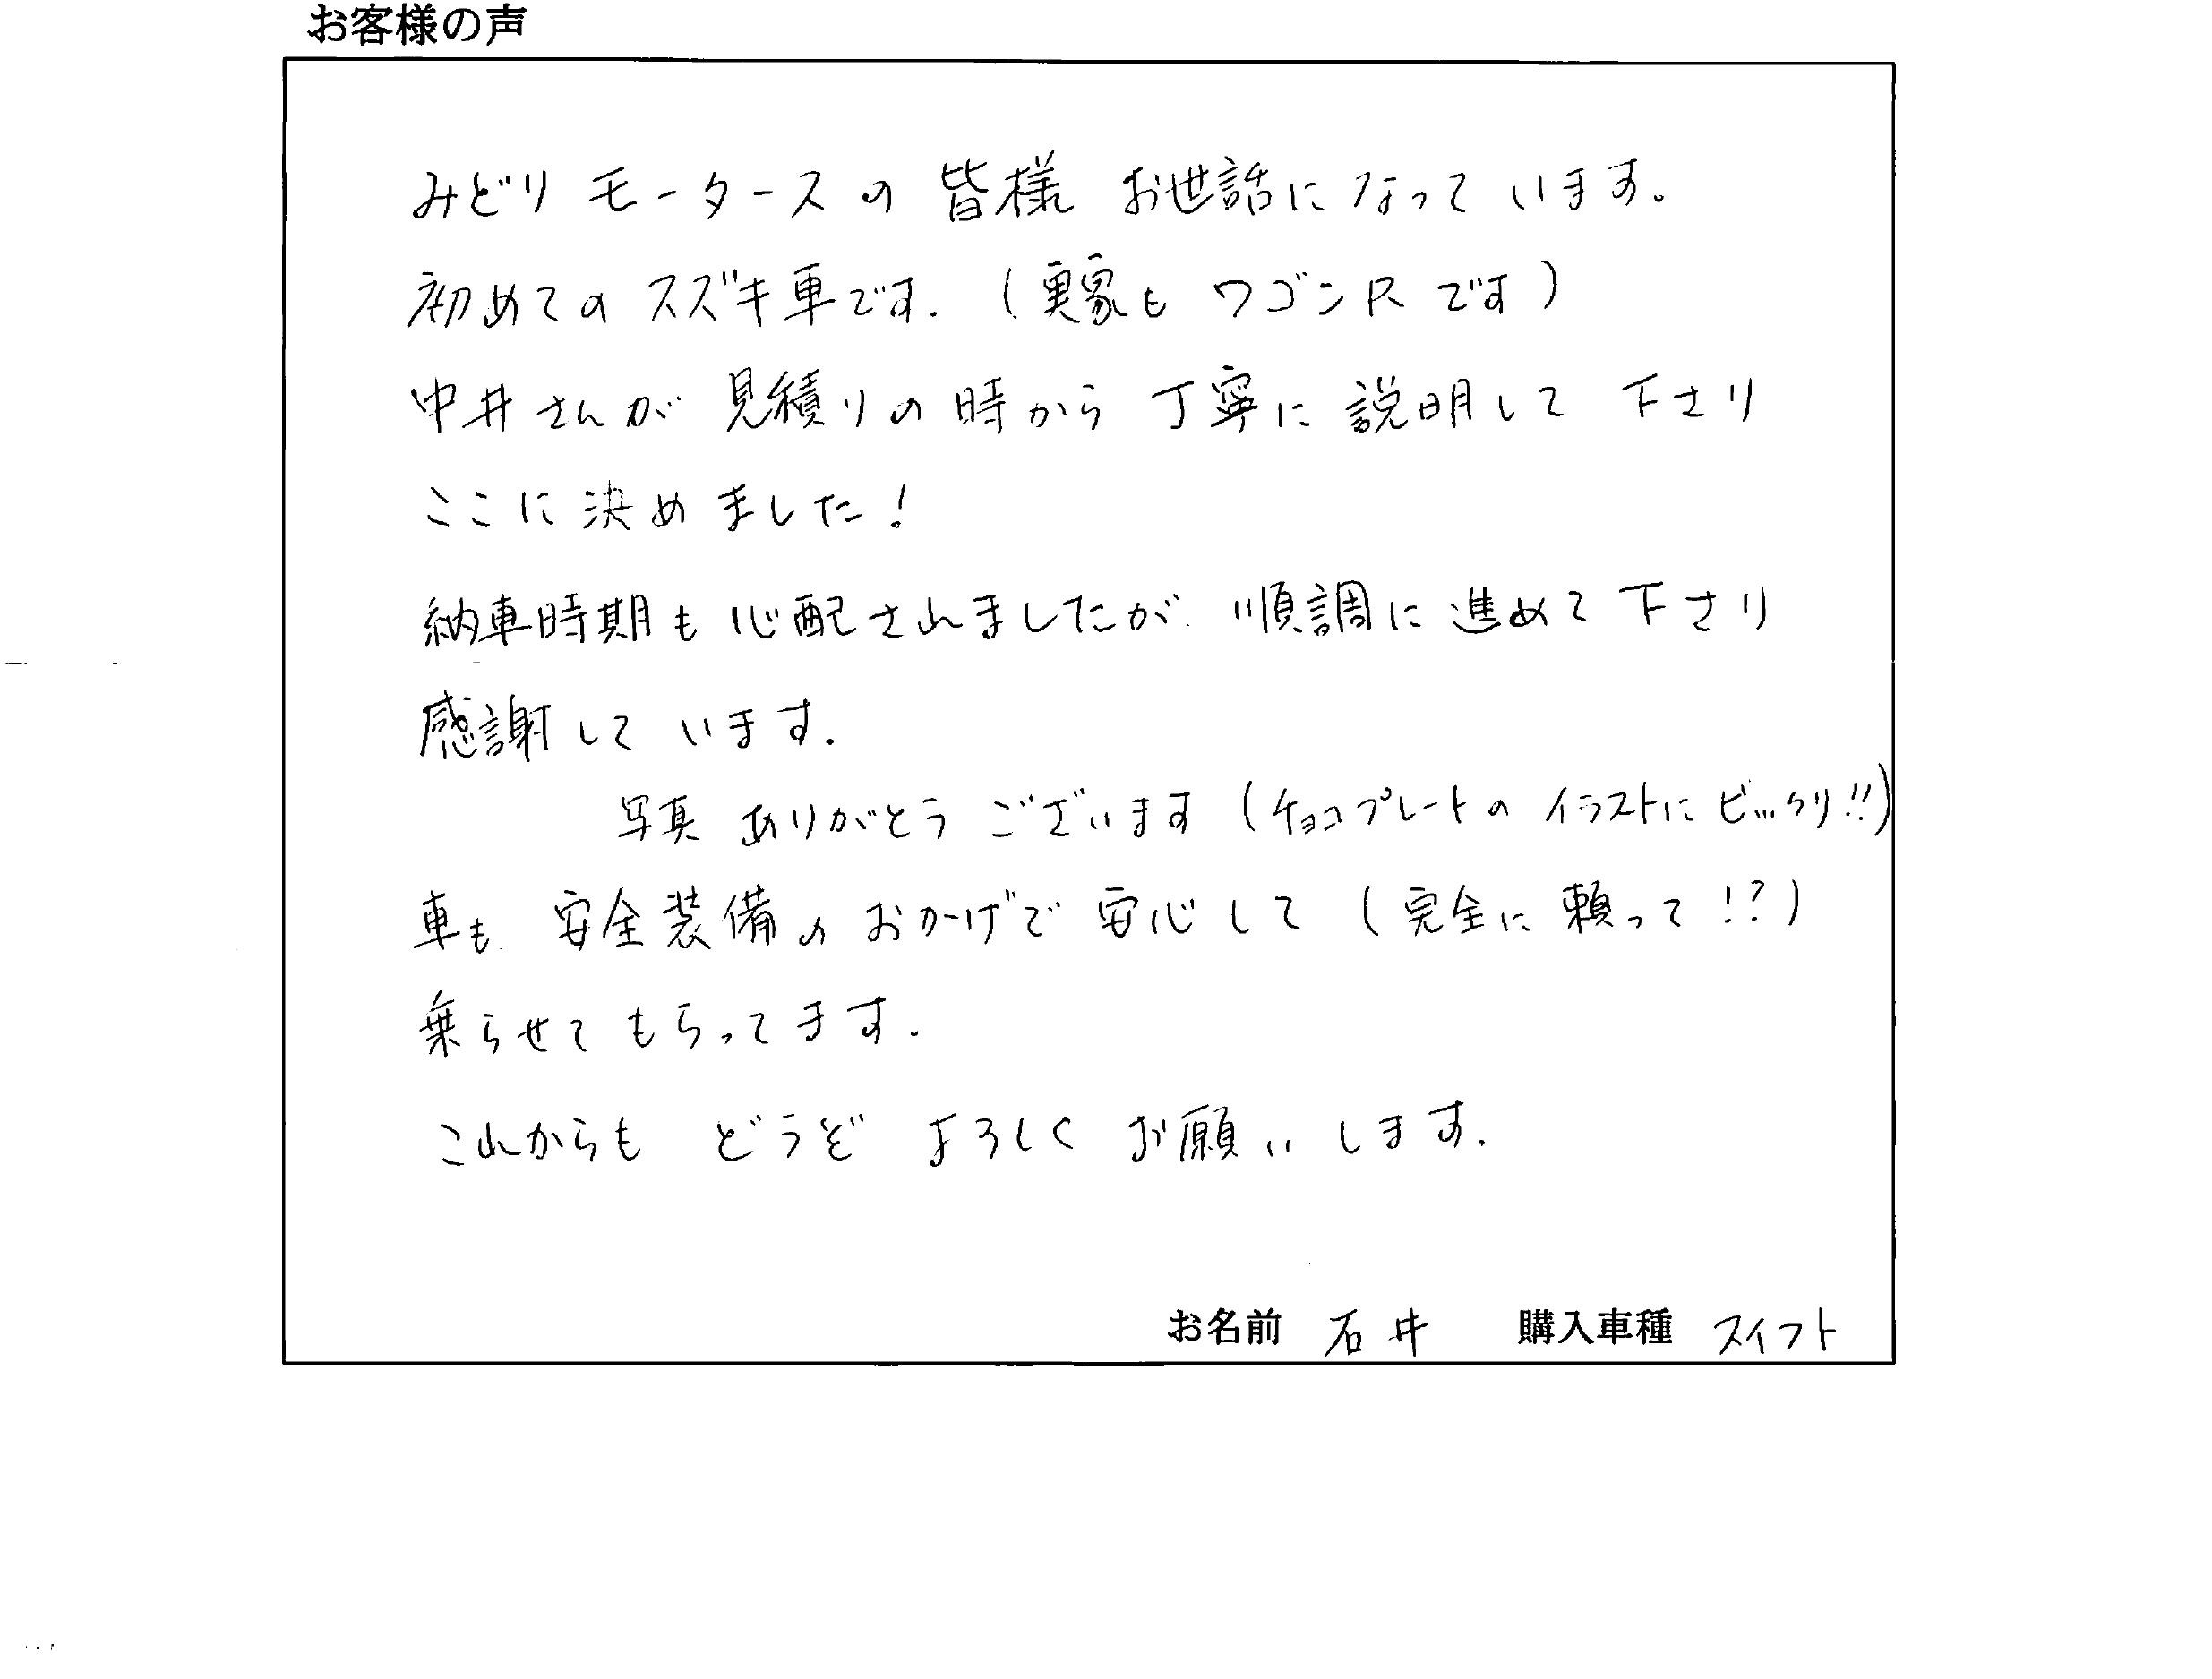 お客様の声
みどりモータースの皆様 お世話になっています。
初めてのスズキ車です.(実家もワゴンRです)
中井さんが見積りの時から丁寧に説明して下さり
ここに決めました!
納車時期も心配されましたが.順調に進めて下さり
感謝しています.
写真ありがとうございます(チョコプレートのイラストにビックリ!!)
車も.安全装備のおかげで安心して(完全に頼って!?)
乗らせてもらってます.
これからも どうぞ よろしく お願いします.
お名前 石井 購入車種 スイフト